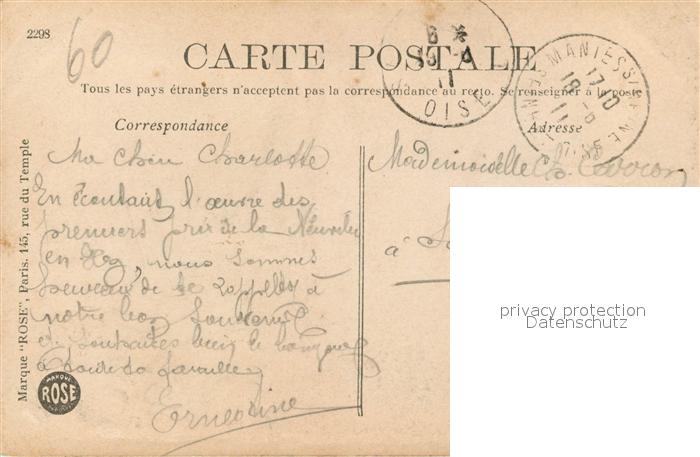 2298
60
CARTE POSTALE
Tous les pays étrangers n'acceptent pas la correspondance au recto. Se renseigner à la poste
Correspondance
Adresse
Ma chère Charlotte
En écoutant l'œuvre des
premiers prix de la Neuville
en Hez, nous sommes
heureux de se rappeler à
notre bon souvenir
et souhaites bien le bonjour
à toute la famille
Ernestine
Mademoiselle Ch.
à
OISE
MANTES
17-10
18
11
Marque "ROSE", Paris. 145, rue du Temple
MARQUE
ROSE
privacy protection
Datenschutz